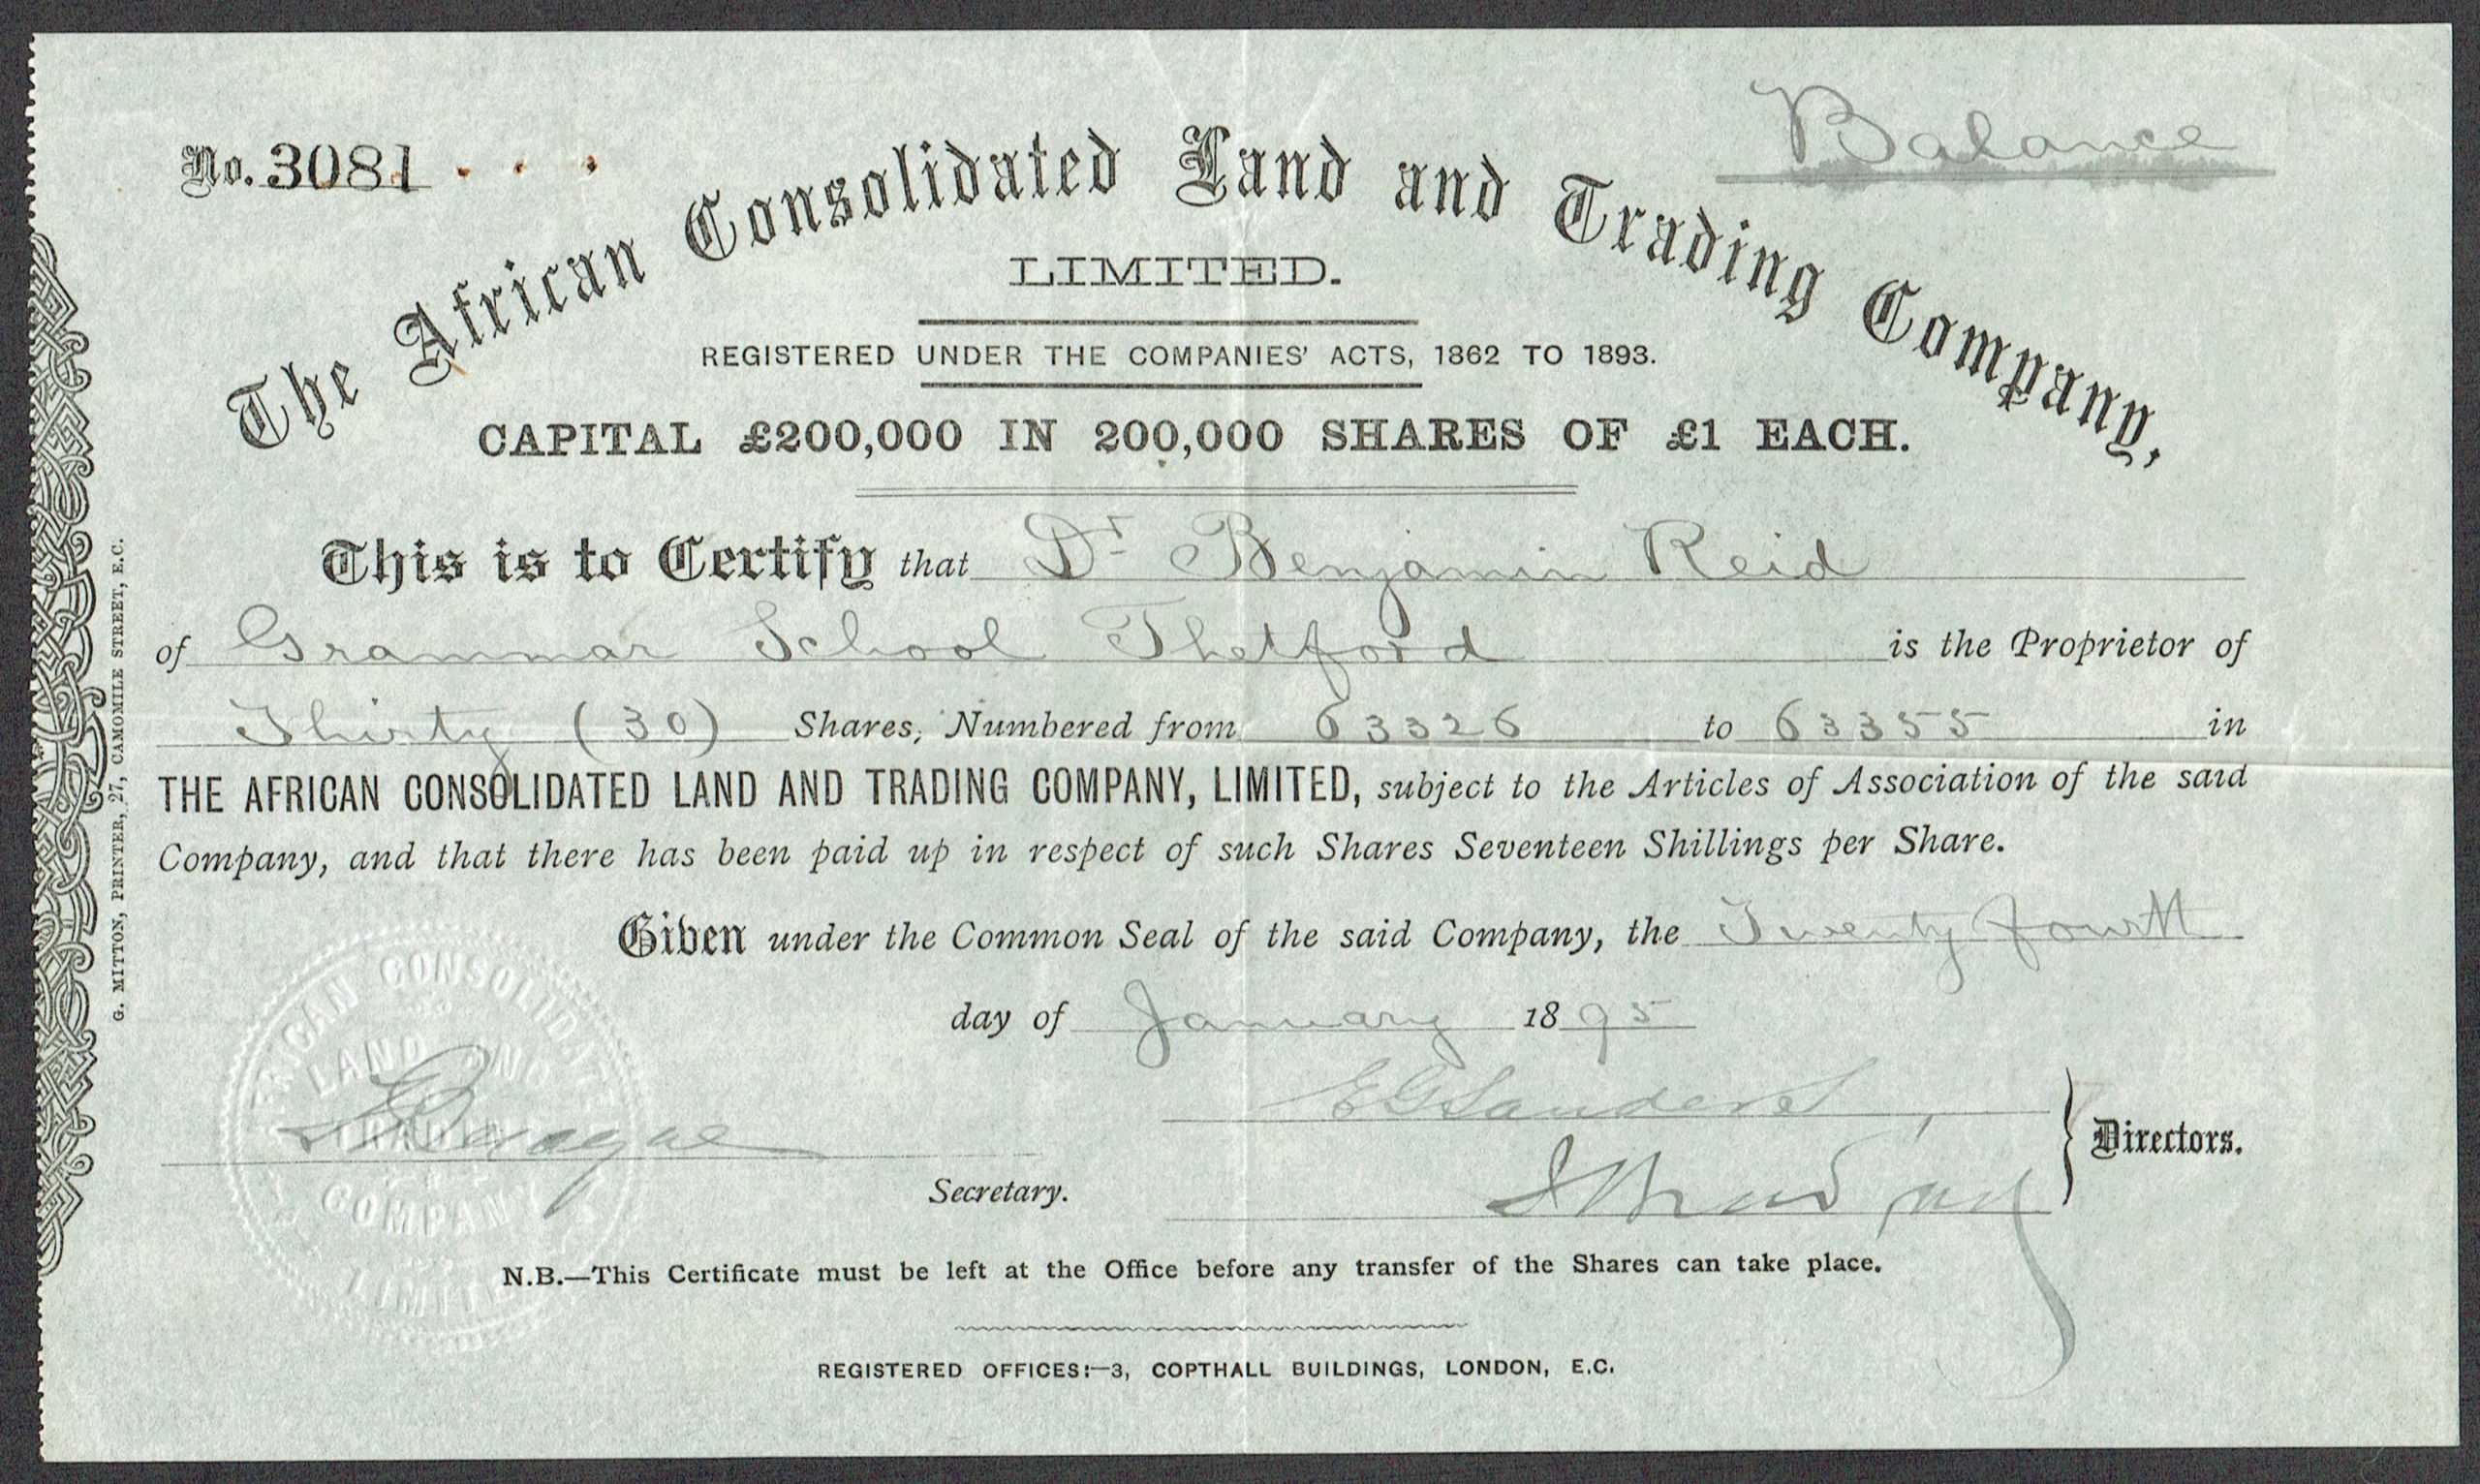 No. 3081
Balance
The African Consolidated Land and Trading Company,
LIMITED.
REGISTERED UNDER THE COMPANIES' ACTS, 1862 TO 1893.
CAPITAL £200,000 IN 200,000 SHARES OF £1 EACH.
This is to Certify that Dr Benjamin Reid
of Grammar School Thetford is the Proprietor of
Thirty (30) Shares, Numbered from 63326 to 63355 in
THE AFRICAN CONSOLIDATED LAND AND TRADING COMPANY, LIMITED, subject to the Articles of Association of the said
Company, and that there has been paid up in respect of such Shares Seventeen Shillings per Share.
Given under the Common Seal of the said Company, the Twenty fourth
day of January 1895
EG Sanders
Directors.
Secretary.
AFRICAN CONSOLIDATED
LAND AND
TRADING
COMPANY
LIMITED
N.B.—This Certificate must be left at the Office before any transfer of the Shares can take place.
REGISTERED OFFICES:—3, COPTHALL BUILDINGS, LONDON, E.C.
G. MITTON, PRINTER, 27, CAMOMILE STREET, E.C.